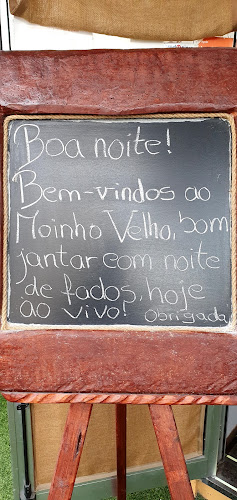 Boa noite!
Bem-vindos ao
Moinho Velho, bom
jantar com noite
de fados, hoje
ao vivo! Obrigada